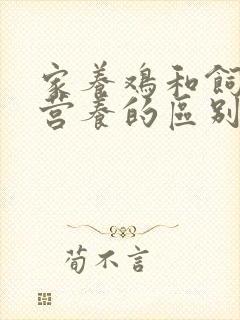 家养鸡和飼
营养的區别
荀不言